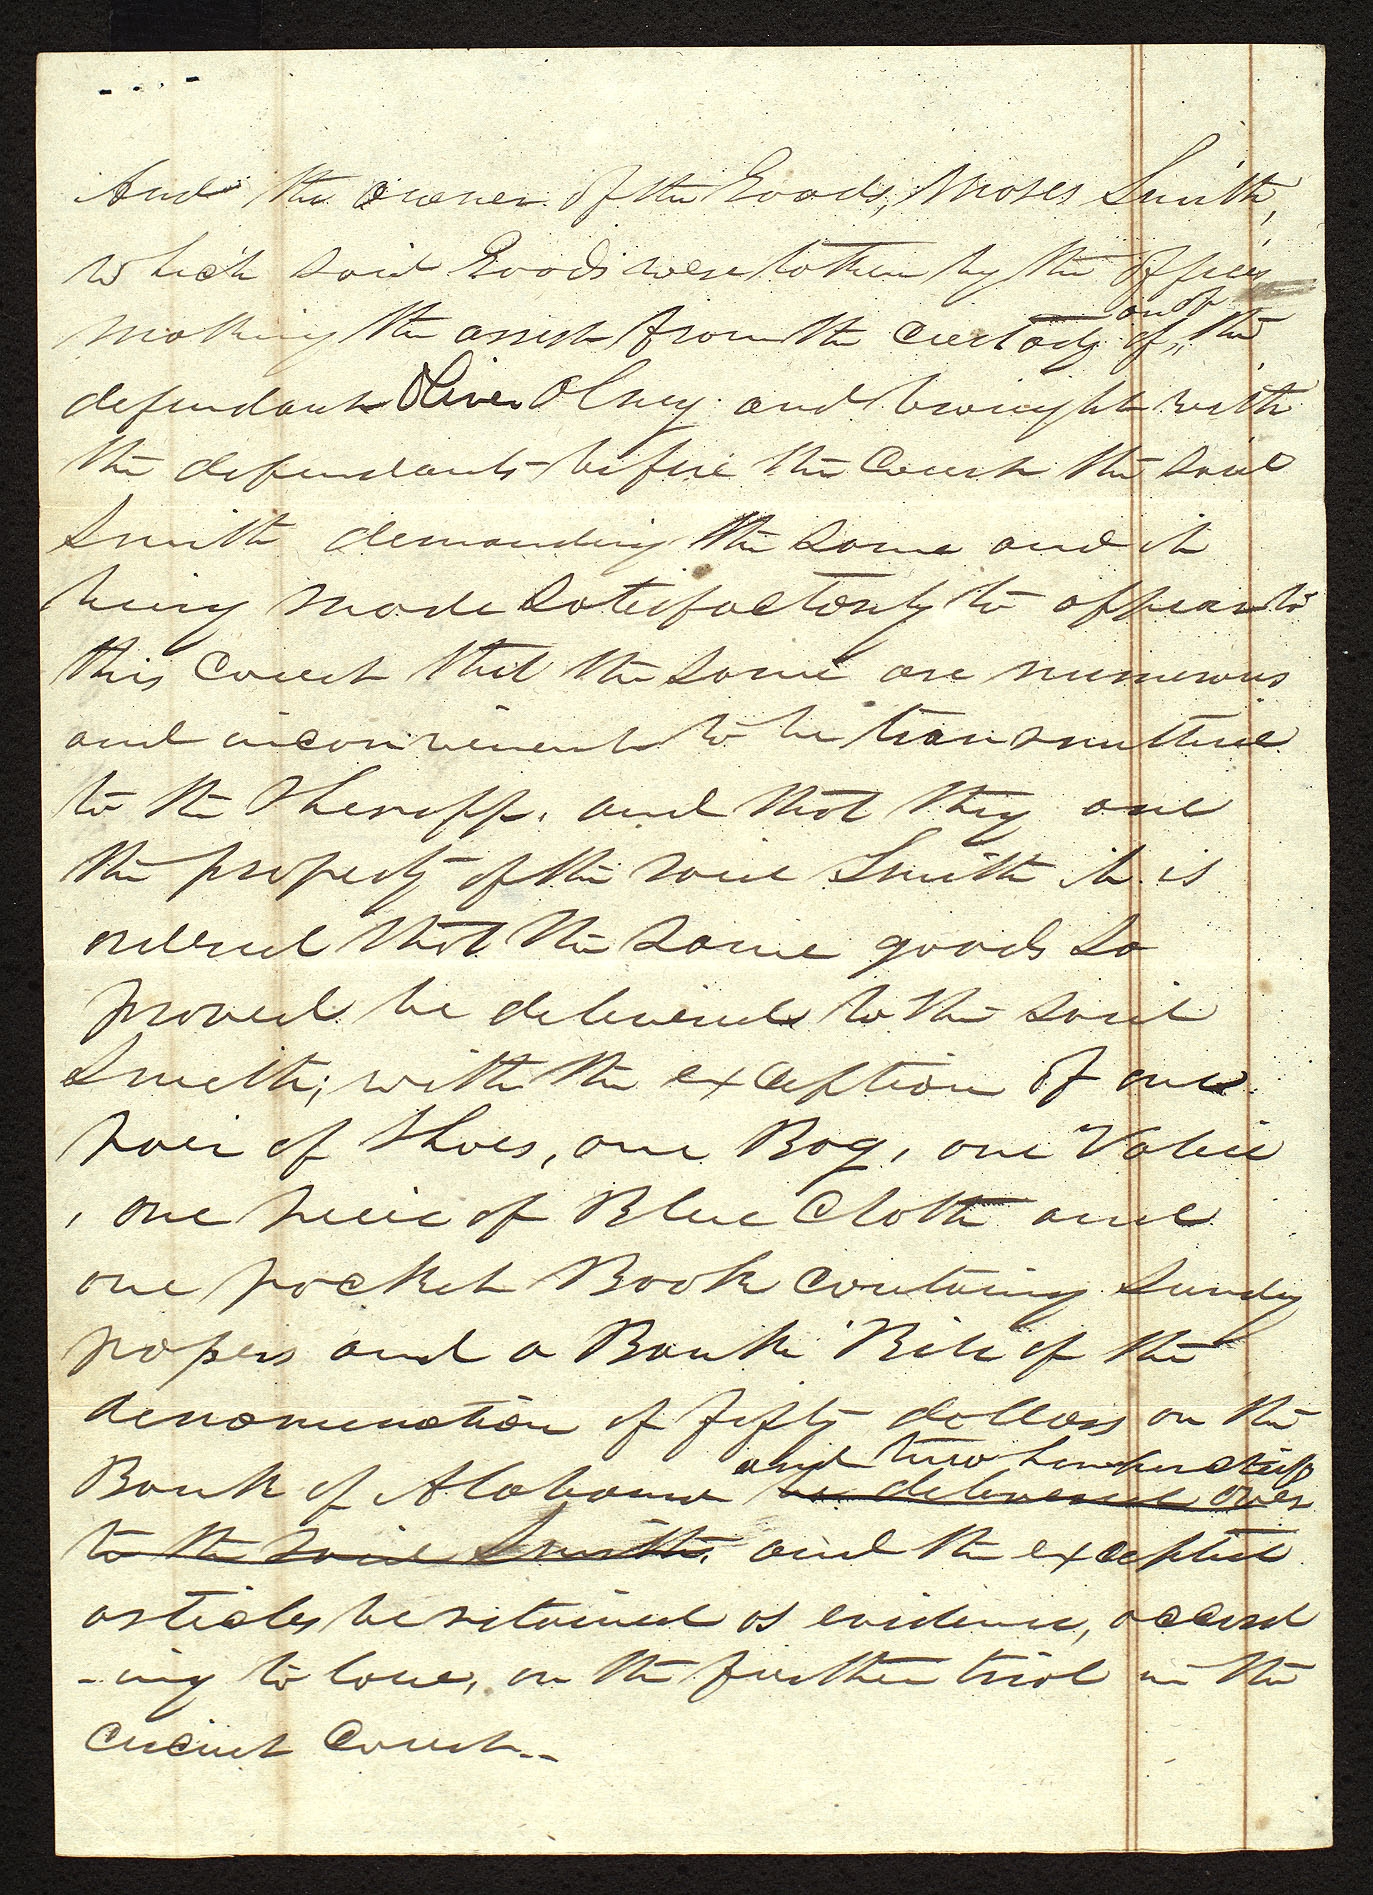 And the owner of the Goods, Moses Smith,
which said Goods were tathen by the officer
making the arrest from the custody of
out of
the
defendant Oliver Olney and brought with
the defendants before the Court the said
Smith demanding the same and it
being made satisfactorily to appear to
this Court that the same are numerous
and inconvenient to be transmitted
to the Sheriff. and that they are
the property of the said Smith it is
ordered that the same goods so
proved be delivered to the said
Smith; with the exception of one
pair of Shoes, one Bag, one Valice
, one peice of Blue Cloth and
one pocket Book containg Sundry
papers and a Bank Bill of the
denomination of fifty dollars on the
and two handkerchiefs
Bank of Alabama be delivered over
to the said Smith. and the excepted
articles be retained as evidence, accord
-ing to law, on the further trial in the
Circuit Court--